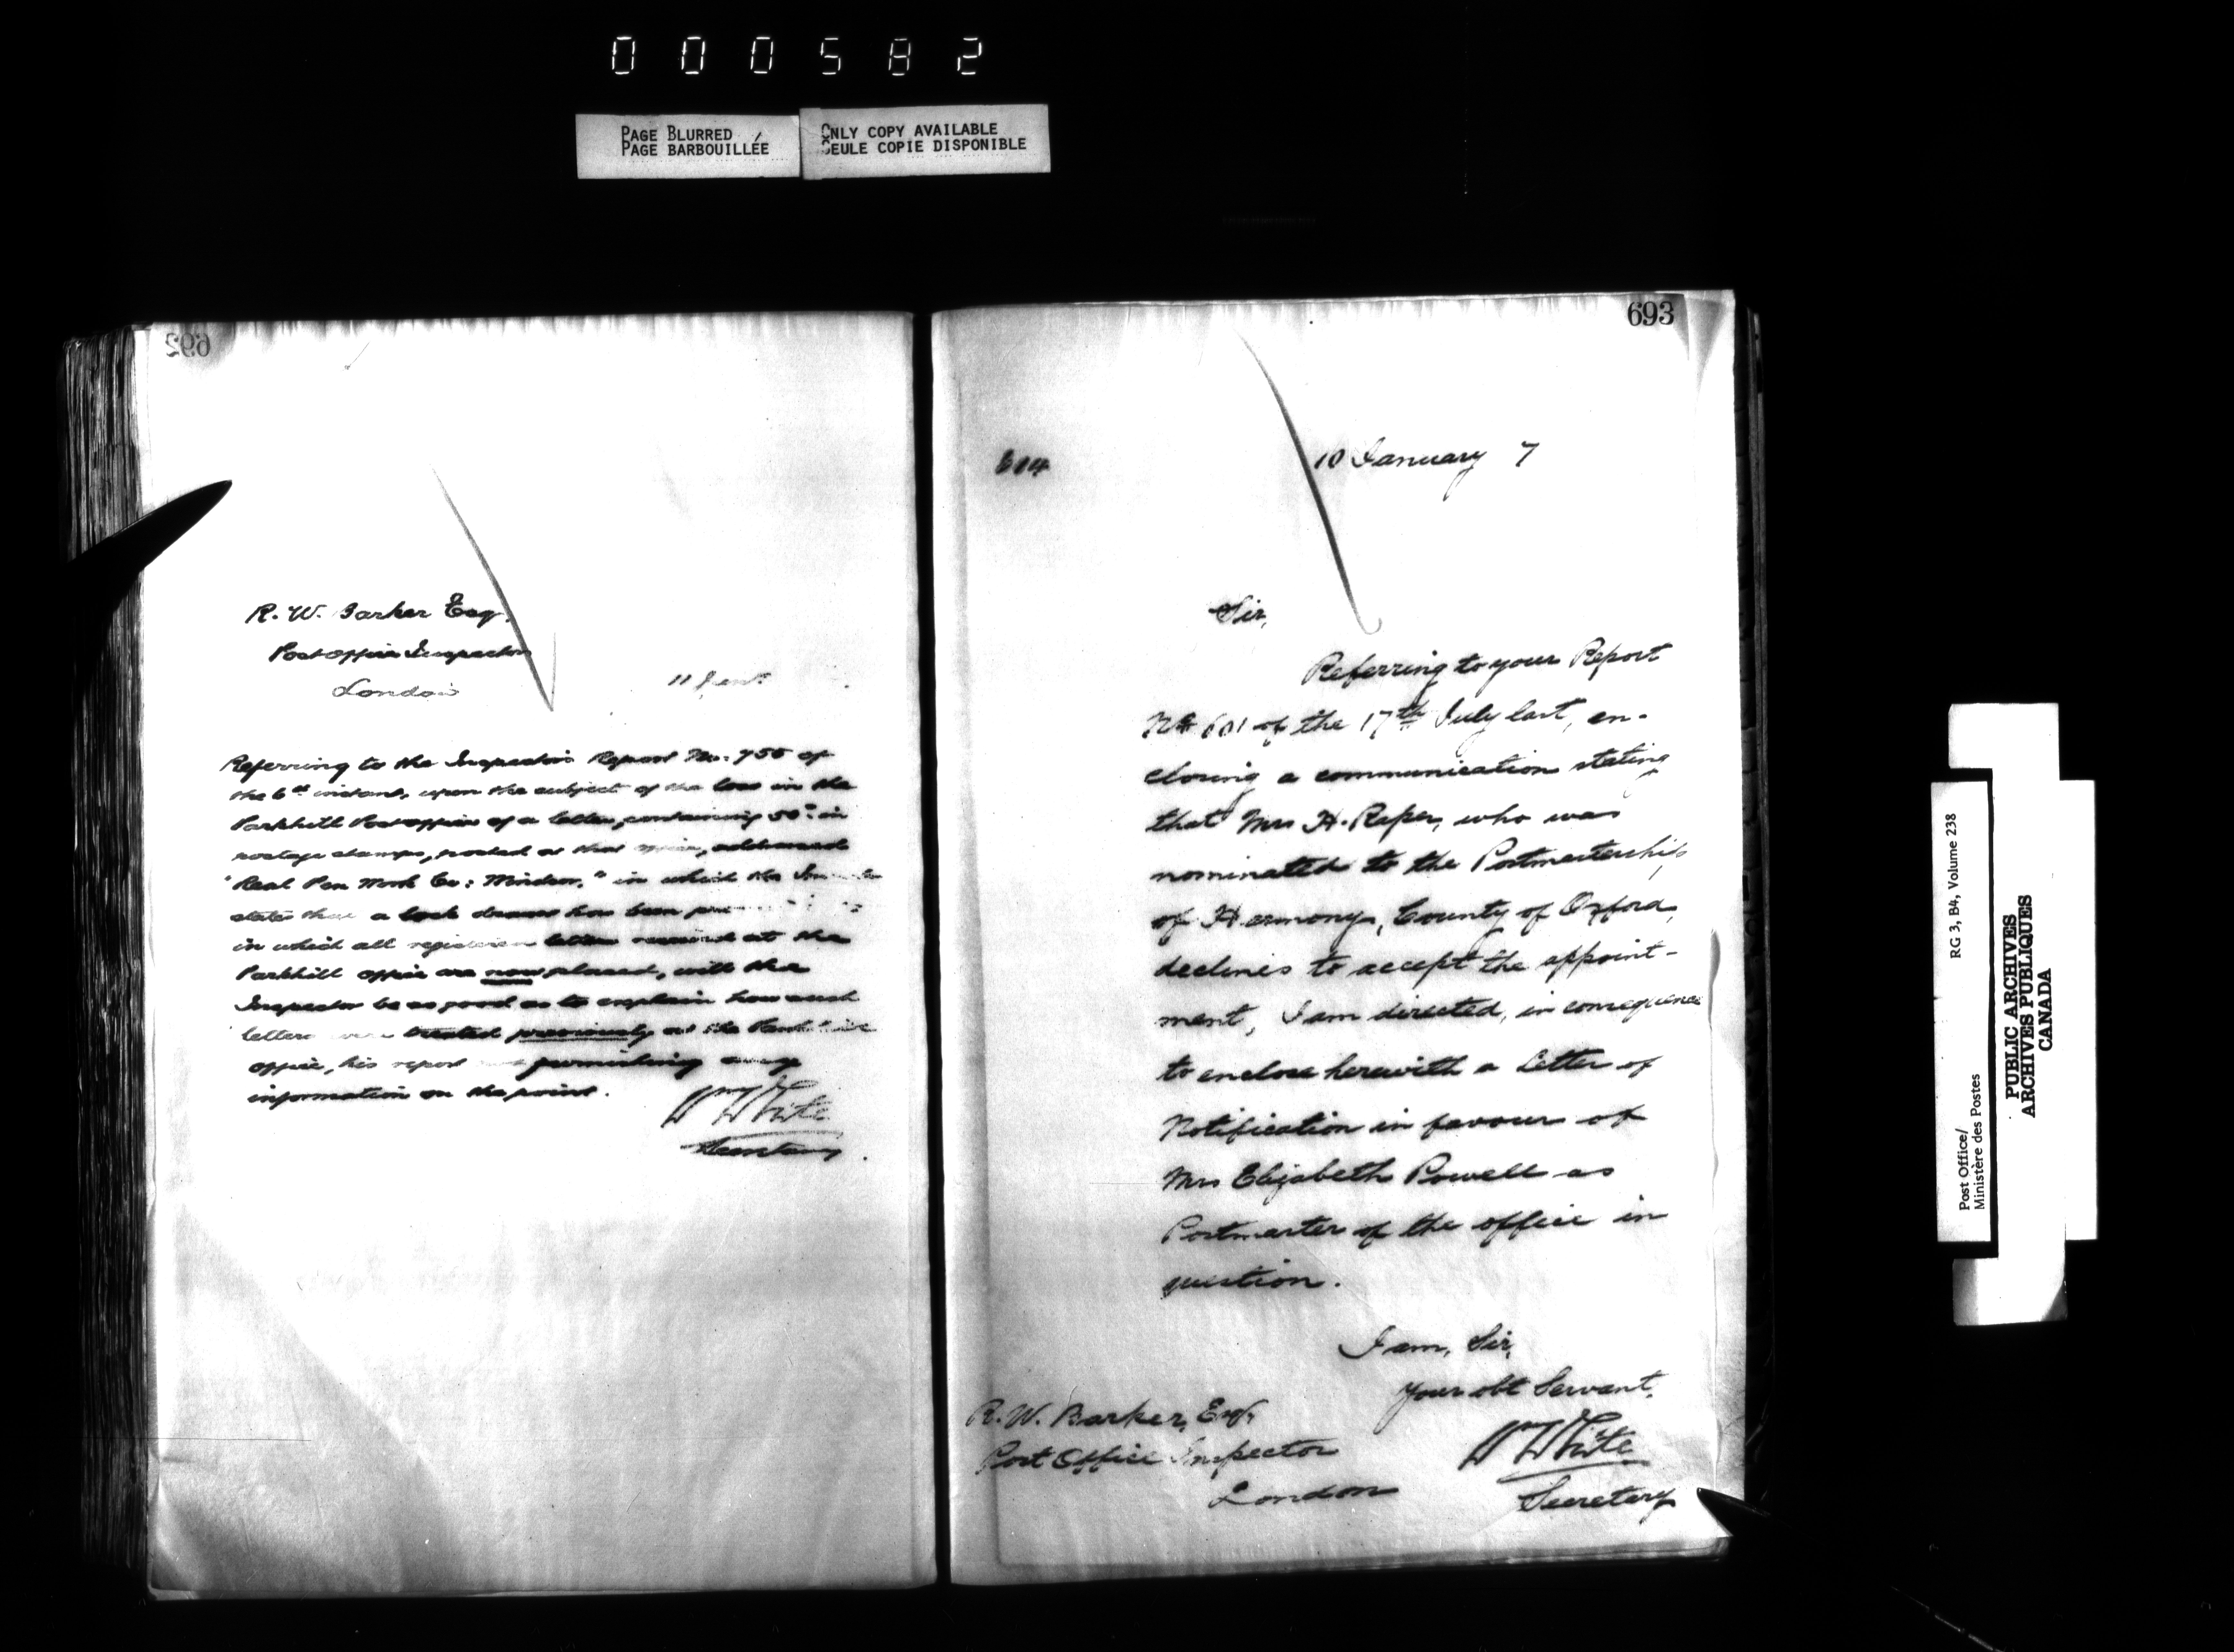 000582
PAGE BLURRED
PAGE BARBOUILLÉE
ONLY COPY AVAILABLE
SEULE COPIE DISPONIBLE
692
R. W. Barker Esq.
Post Office Inspector
London
11 Jan
Referring to the Inspector's Report No. 755 of
the 6th instant, upon the subject of the loss in the
Parkhill Post office of a letter, containing 50c in
postage stamps, posted at that office, addressed
"Real Pen Work Co: Windsor," in which the
states that a lock drawer has been
in which all registered letters received at the
Parkhill office are now placed, will the
Inspector be so good as to explain how such
letters were treated previously at the Parkhill
office, his report not furnishing any
information on the point.
Wm White
Secretary.
693
614
10 January 7
Sir,
Referring to your Report
No 601 of the 17th July last, en-
closing a communication stating
that Mrs H. Raper, who was
nominated to the Postmastership
of Harmony, County of Oxford,
declines to accept the appoint-
ment, I am directed, in consequence
to enclose herewith a Letter of
Notification in favour of
Mrs Elizabeth Powell as
Postmaster of the office in
question.
I am, Sir,
Your obt Servant,
Wm White
Secretary
R. W. Barker, Esq.
Post Office Inspector
London
Post Office/
Ministère des Postes
RG 3, B4, Volume 238
PUBLIC ARCHIVES
ARCHIVES PUBLIQUES
CANADA